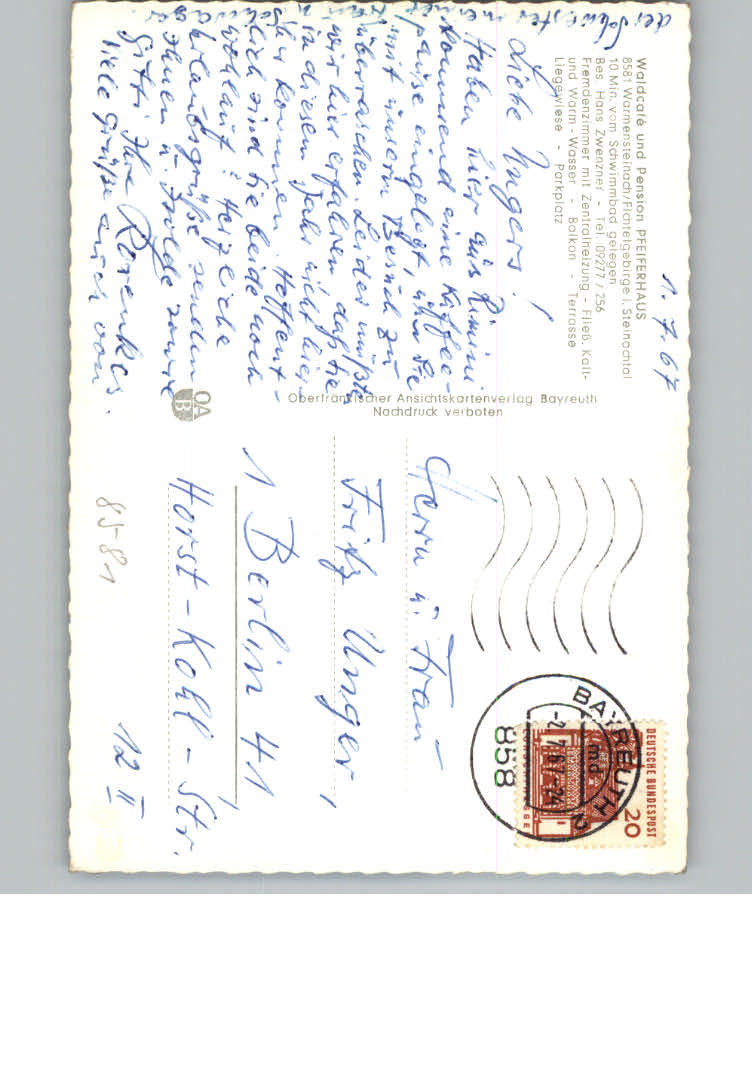 Waldcafé und Pension PFEIFERHAUS
8581 Warmensteinach/Fichtelgebirge i. Steinachtal
10 Min. vom Schwimmbad gelegen
Bes. Hans Zwenzner - Tel. 09277 / 256
Fremdenzimmer mit Zentralheizung - Fließ. Kalt-
und Warm-Wasser - Balkon - Terrasse
Liegewiese - Parkplatz
1. 7. 67
Liebe Ungers!
Haben hier aus Rimini
kommend eine Kaffee-
pause eingelegt, um Sie
mit unserm Besuch zu
überraschen. Leider mußten
wir hier erfahren daß Sie
in diesem Jahr nicht hier-
her kommen. Hoffent-
lich sind Sie beide noch
wohlauf? Herzliche
Urlaubsgrüße senden
Ihnen u. Isolde sowie
Gitti Ihre
viele Grüße auch von
der Schwester meiner
Oberfränkischer Ansichtskartenverlag Bayreuth
Nachdruck verboten
OA
B
Herrn u. Frau
Fritz Unger,
1 Berlin 41,
Horst-Kohl-Str.
12 II
8581
DEUTSCHE BUNDESPOST
20
BAYREUTH 2
md
-2.7.67-24
858